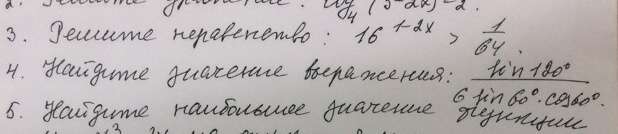 2. Решите уравнение: log₄(5-2x)=2.
3. Решите неравенство: 16^(1-2x) > 1/64.
4. Найдите значение выражения: sin120° / (6 sin60°·cos60°.
5. Найдите наибольшее значение функции